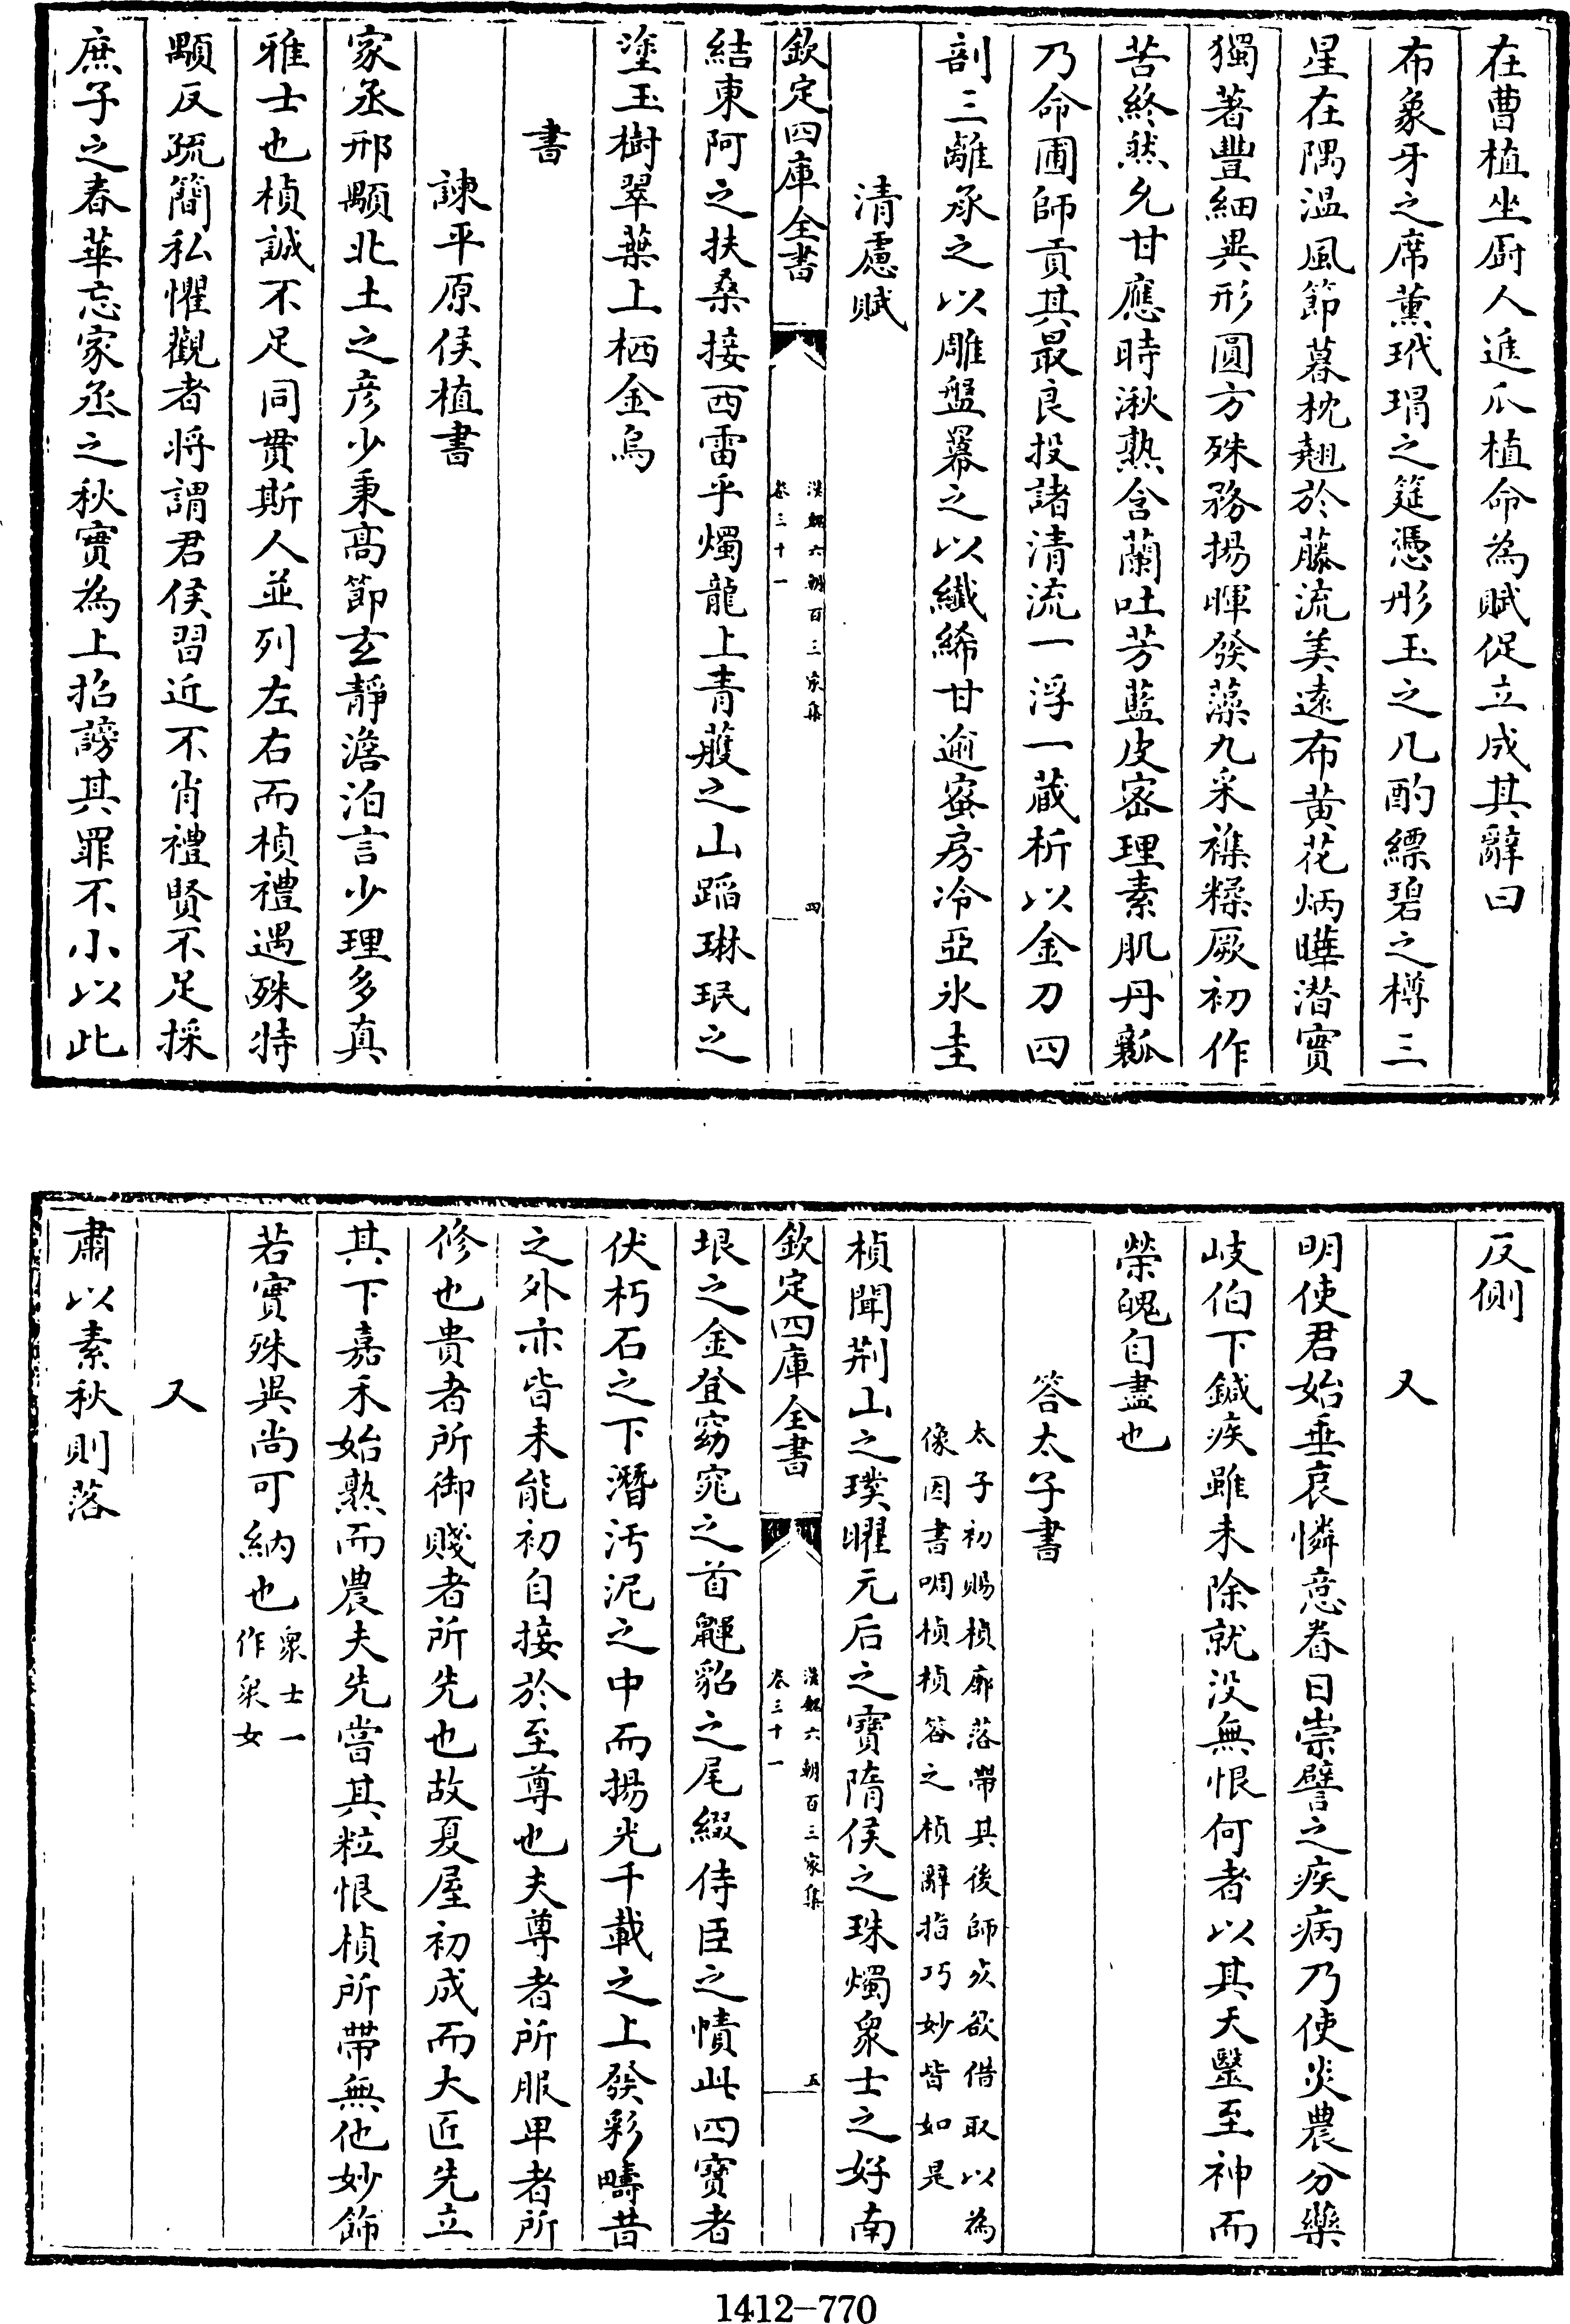 在曹植坐厨人進瓜植命為賦促立成其辭曰
布象牙之席薰玳瑁之筵憑彤玉之几酌縹碧之樽三
星在隅温風節暮枕翹於藤流美遠布黄花炳曄潛實
獨著豐細異形圓方殊務揚暉發藻九采襍糅厥初作
苦終然允甘應時湫熟含蘭吐芳藍皮密理素肌丹瓤
乃命圃師貢其最良投諸清流一浮一藏析以金刀四
剖三離承之以雕盤羃之以纖絺甘逾蜜房冷亞氷圭
清慮賦
欽定四庫全書
漢魏六朝百三家集
卷三十一
四
結東阿之扶桑接西雷乎燭龍上青䕶之山蹈琳珉之
塗玉樹翠葉上栖金烏
書
諫平原侯植書
家丞邢顒北土之彦少秉髙節玄靜澹泊言少理多真
雅士也楨誠不足同貫斯人並列左右而楨禮遇殊特
顒反疏簡私懼觀者將謂君侯習近不肖禮賢不足採
庶子之春華忘家丞之秋實為上招謗其罪不小以此
反側
又
明使君始垂哀憐意眷日崇譬之疾病乃使炎農分藥
岐伯下鍼疾雖未除就没無恨何者以其天醫至神而
榮魄自盡也
答太子書
太子初賜楨廓落帶其後師死欲借取以為
像因書啁楨楨答之楨辭指巧妙皆如是
楨聞荆山之璞曜元后之寶隋侯之珠燭衆士之好南
欽定四庫全書
漢魏六朝百三家集
卷三十一
五
垠之金登窈窕之首鼲貂之尾綴侍臣之幘此四寳者
伏朽石之下潛汚泥之中而揚光千載之上發彩疇昔
之外亦皆未能初自接於至尊也夫尊者所服卑者所
修也貴者所御賤者所先也故夏屋初成而大匠先立
其下嘉禾始熟而農夫先嘗其粒恨楨所帶無他妙飾
若實殊異尚可納也衆士一作衆女
又
肅以素秋則落
1412-770